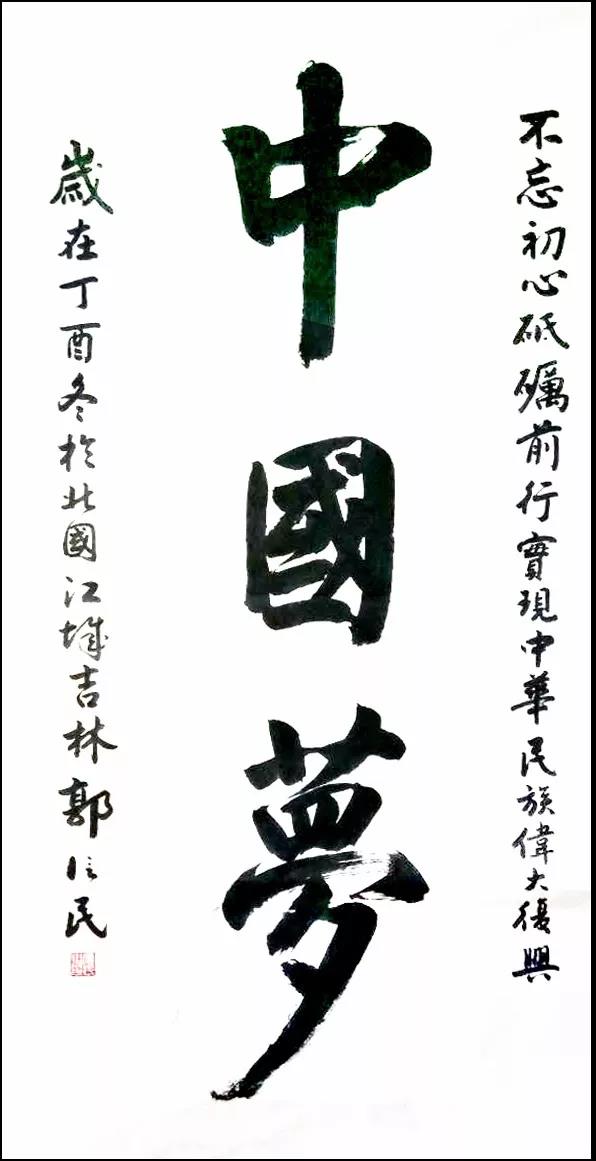 不忘初心砥礪前行實現中華民族偉大復興
中國夢
歲在丁酉冬於北國江城吉林郭信民